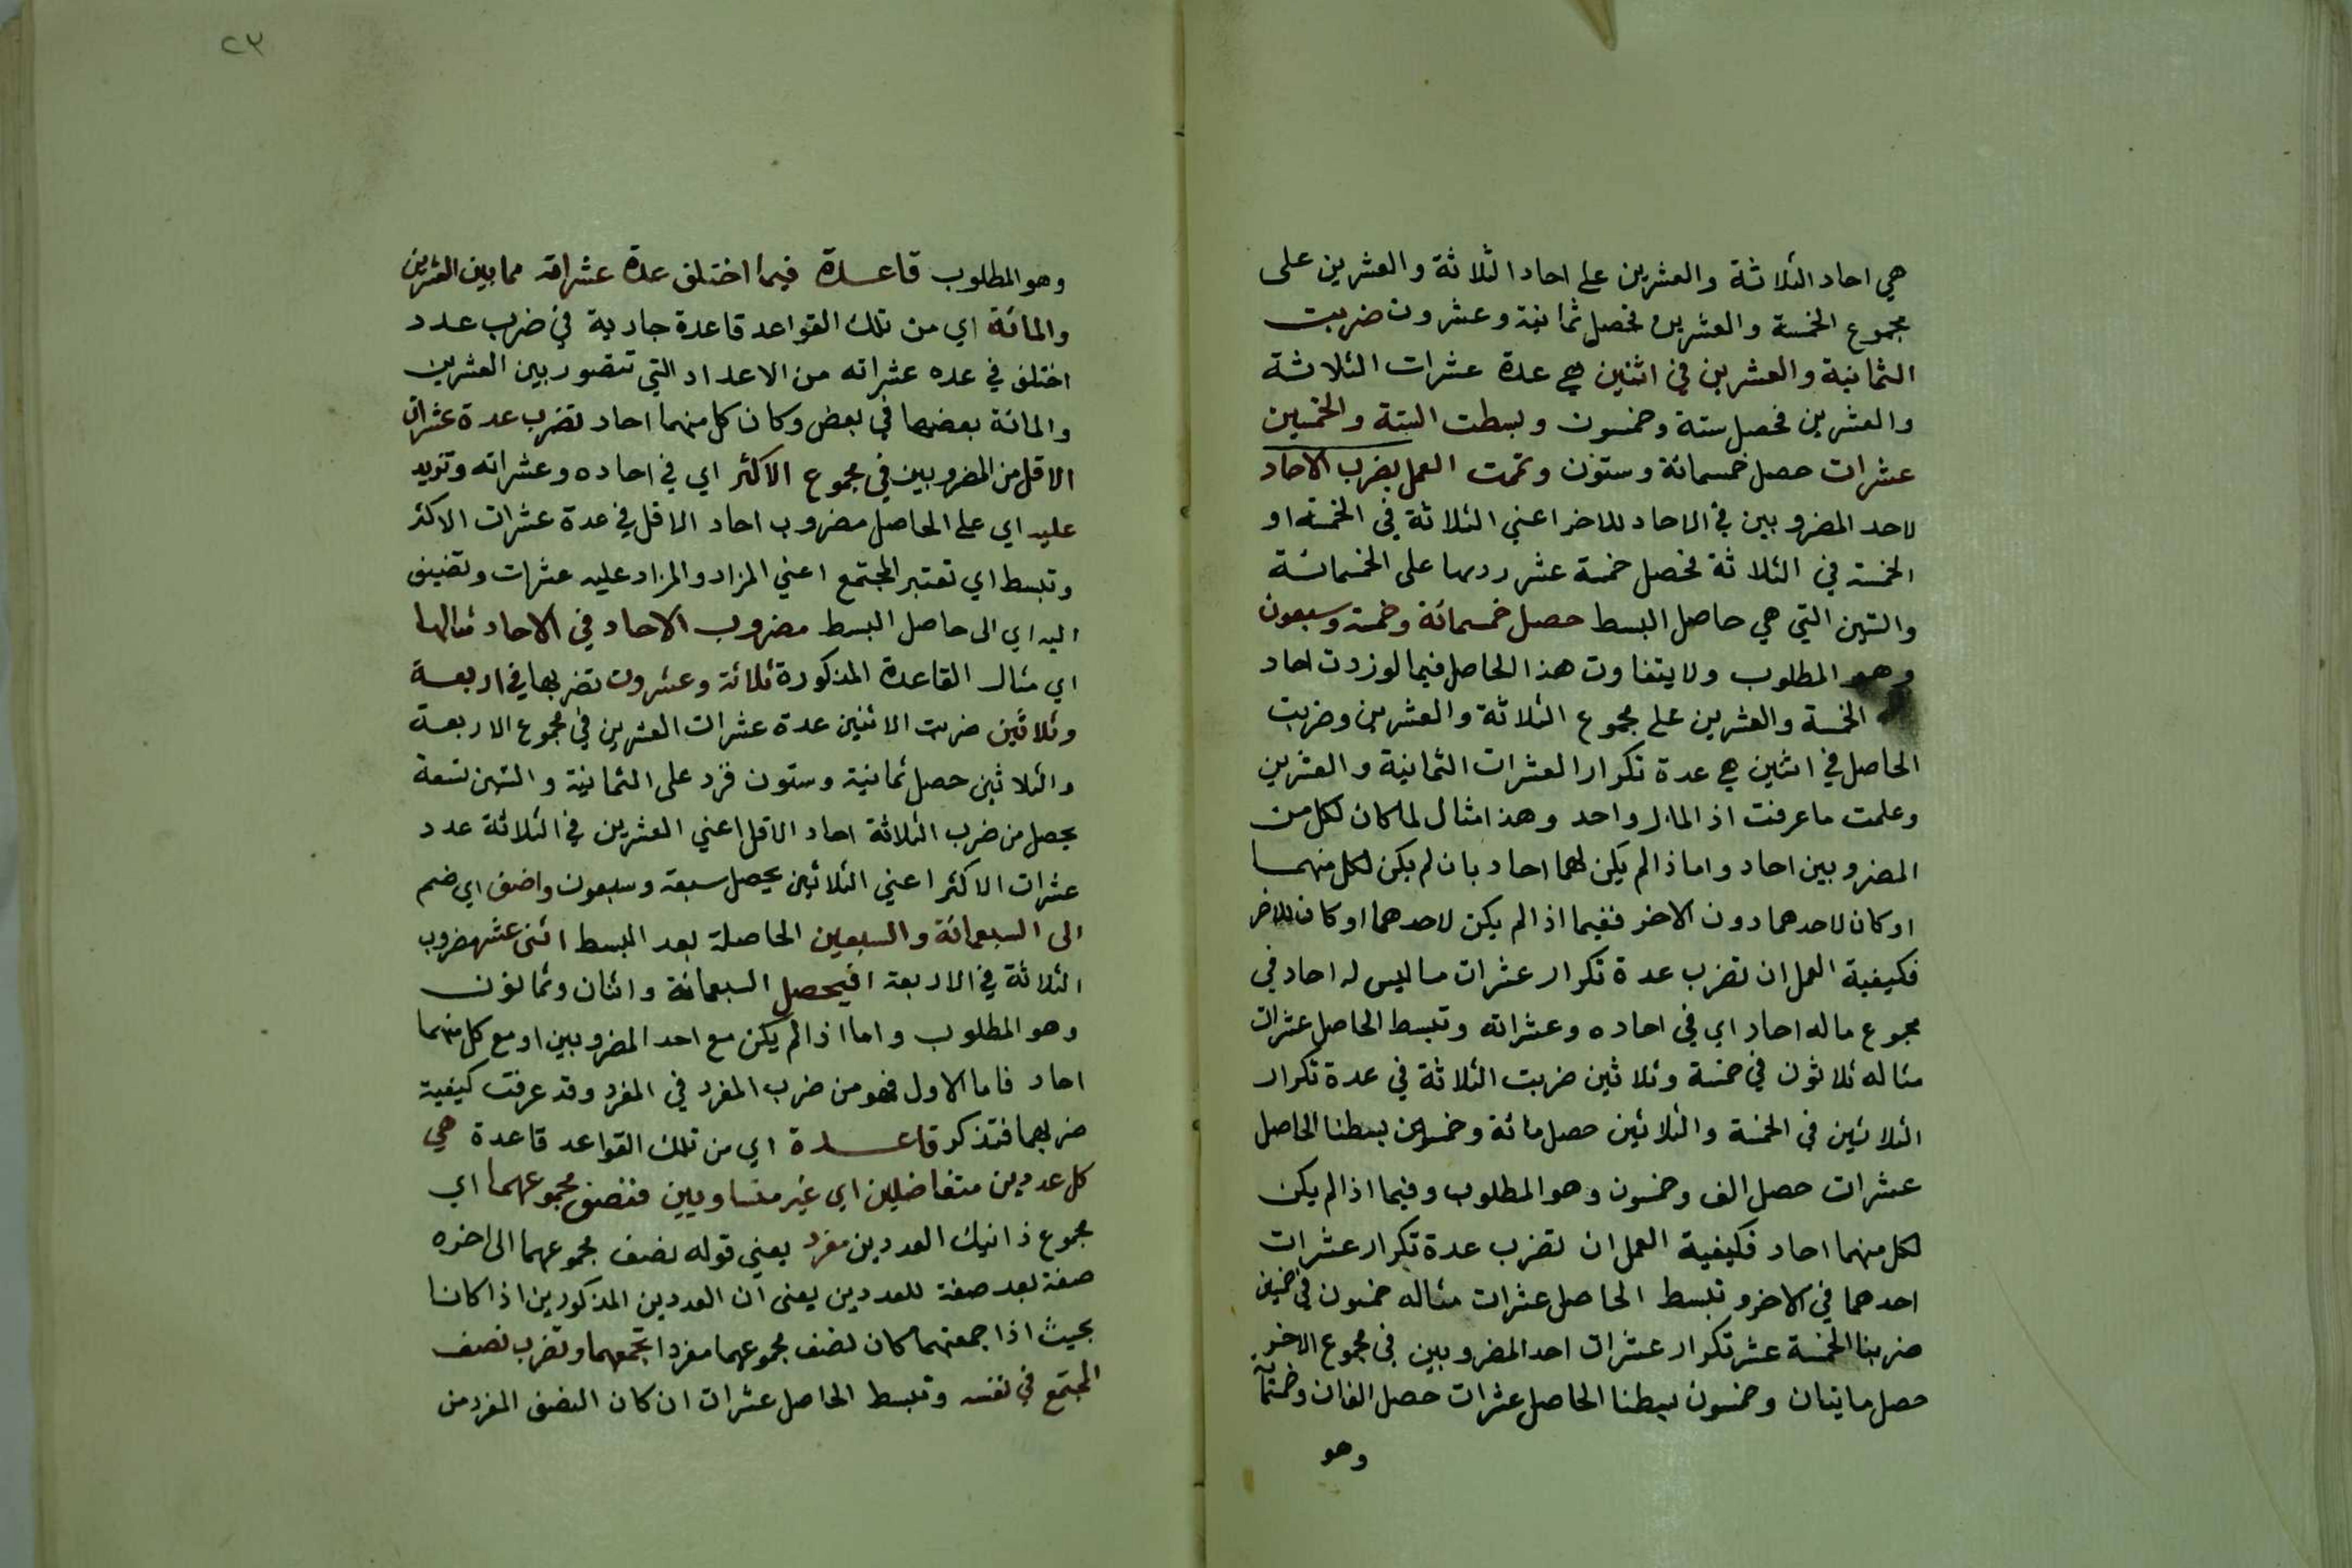 هي احاد الثلاثة والعشرين على احاد الثلاثة والعشرين على
مجموع الخمسة والعشرين فحصل ثمانية وعشرون ضربت
الثمانية والعشرين في اثنين هي عدة عشرات الثلاثة
والعشرين فحصل ستة وخمسون وبسطت الستة والخمسين
عشرات حصل خمسمائة وستون وتمت العمل بضرب الاحاد
لاحد المضروبين في الاحاد للاخر اعني الثلاثة في الخمسة او
الخمسة في الثلاثة فحصل خمسة عشر زدها على الخمسمائة
والستين التي هي حاصل البسط حصل خمسمائة وخمسة وسبعون
وهو المطلوب ولا يتفاوت هذا الحاصل فيما لو زدت احاد
الخمسة والعشرين على مجموع الثلاثة والعشرين وضربت
الحاصل في اثنين هي عدة تكرار العشرات الثمانية والعشرين
وعلمت ما عرفت اذ المال واحد وهذا مثال لما كان لكل من
المضروبين احاد واما ذا لم يكن لهما احاد بان لم يكن لكل منهما
او كان لاحدهما دون الاخر ففيما اذ الم يكن لاحدهما او كان للاخر
فكيفية العمل ان تضرب عدة تكرار عشرات ما ليس له احاد في
مجموع ما له احاد اي في احاده وعشراته وتبسط الحاصل عشرات
مثاله ثلاثون في خمسة وثلاثين ضربت الثلاثة في عدة تكرار
الثلاثين في الخمسة والثلاثين حصل مائة وخمسون بسطنا الحاصل
عشرات حصل الف وخمسون وهو المطلوب وفيما اذ الم يكن
لكل منهما احاد فكيفية العمل ان تضرب عدة تكرار عشرات
احدهما في الاخر وتبسط الحاصل عشرات مثاله خمسون في خمسين
ضربنا الخمسة عشر تكرار عشرات احد المضروبين في مجموع الاخر
حصل مايتان وخمسون بسطنا الحاصل عشرات حصل الفان وخمسمأ
وهو
٢٣
وهو المطلوب قاعدة فيما اختلف عدة عشراته مما بين العشرين
والمائة اي من تلك القواعد قاعدة جارية في ضرب عدد
اختلف في عده عشراته من الاعداد التي تتصور بين العشرين
والمائة بعضها في بعض وكان كل منهما احاد تضرب عدة عشرات
الاقل من المضروبين في مجموع الاكثر اي في احاده وعشراته وتزيد
عليه اي على الحاصل مضروب احاد الاقل في عدة عشرات الاكثر
وتبسط اي تعتبر المجتمع اعني المزاد والمزاد عليه عشرات وتضيف
اليه اي الى حاصل البسط مضروب الاحاد في الاحاد مثالها
اي مثال القاعدة المذكورة ثلاثة وعشرون تضربها في اربعة
وثلاثين ضربت الاثنين عدة عشرات العشرين في مجموع الاربعة
والثلاثين حصل ثمانية وستون فزد على الثمانية والستين تسعة
يحصل من ضرب الثلاثة احاد الاقل اعني العشرين في الثلاثة عدد
عشرات الاكثر اعني الثلاثين يحصل سبعة وسبعون واضف اي ضم
الى السبعمائة والسبعين الحاصلة بعد البسط اثنى عشر مضروب
الثلاثة في الاربعة فيحصل السبعمائة واثنان وثمانون
وهو المطلوب واما اذ الم يكن مع احد المضروبين او مع كل منهما
احاد فاما الاول فهو من ضرب المفرد في المفرد وقد عرفت كيفية
ضربهما فتذكر قاعدة اي من تلك القواعد قاعدة هي
كل عددين متفاضلين اي غير متساويين فنصف مجموعهما اي
مجموع ذانيك العددين مفرد يعني قوله نصف مجموعهما الى اخره
صفة بعد صفة للعددين يعنى ان العددين المذكورين اذا كانا
بحيث اذا جمعتهما كان نصف مجموعهما مفردا تجمعهما وتضرب نصف
المجتمع في نفسه وتبسط الحاصل عشرات ان كان النصف المفرد من